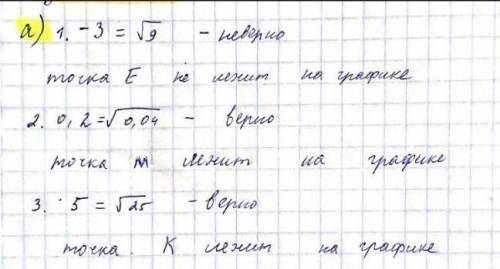 а) 1. -3 = √9 - неверно
точка E не лежит на графике
2. 0,2 = √0,04 - верно
точка м лежит на графике
3. 5 = √25 - верно
точка. К лежит на графике